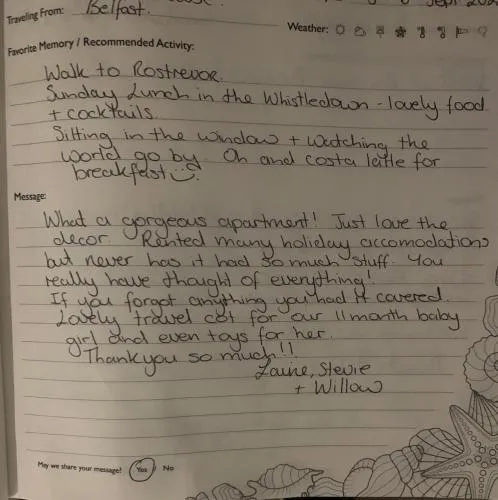 Traveling From: Belfast.
Weather:
Favorite Memory / Recommended Activity:
Walk to Rostrevor.
Sunday Lunch in the Whistledown - lovely food
+ cocktails.
Sitting in the window + watching the
world go by. Oh and costa latte for
breakfast
Message:
What a gorgeous apartment! Just love the
decor. Rented many holiday accomodations
but never has it had so much stuff. You
really have thought of everything!
If you forgot anything you had it covered.
Lovely travel cot for our 11 month baby
girl and even toys for her.
Thank you so much!!
Stevie
+ Willow
May we share your message? Yes / No